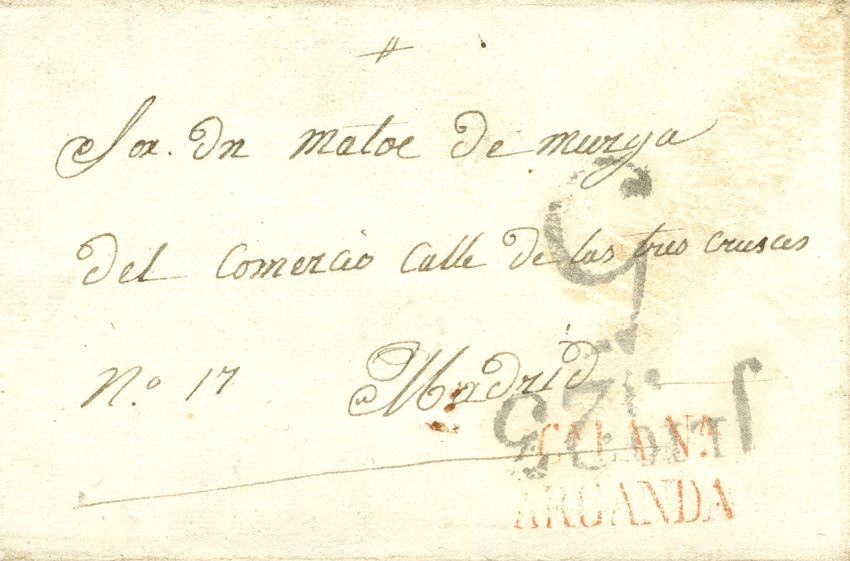 #
Sor. Dn Matoe de Murga
del Comercio Calle de las tres Cruses
N.º 17 Madrid
CALANA
ARGANDA